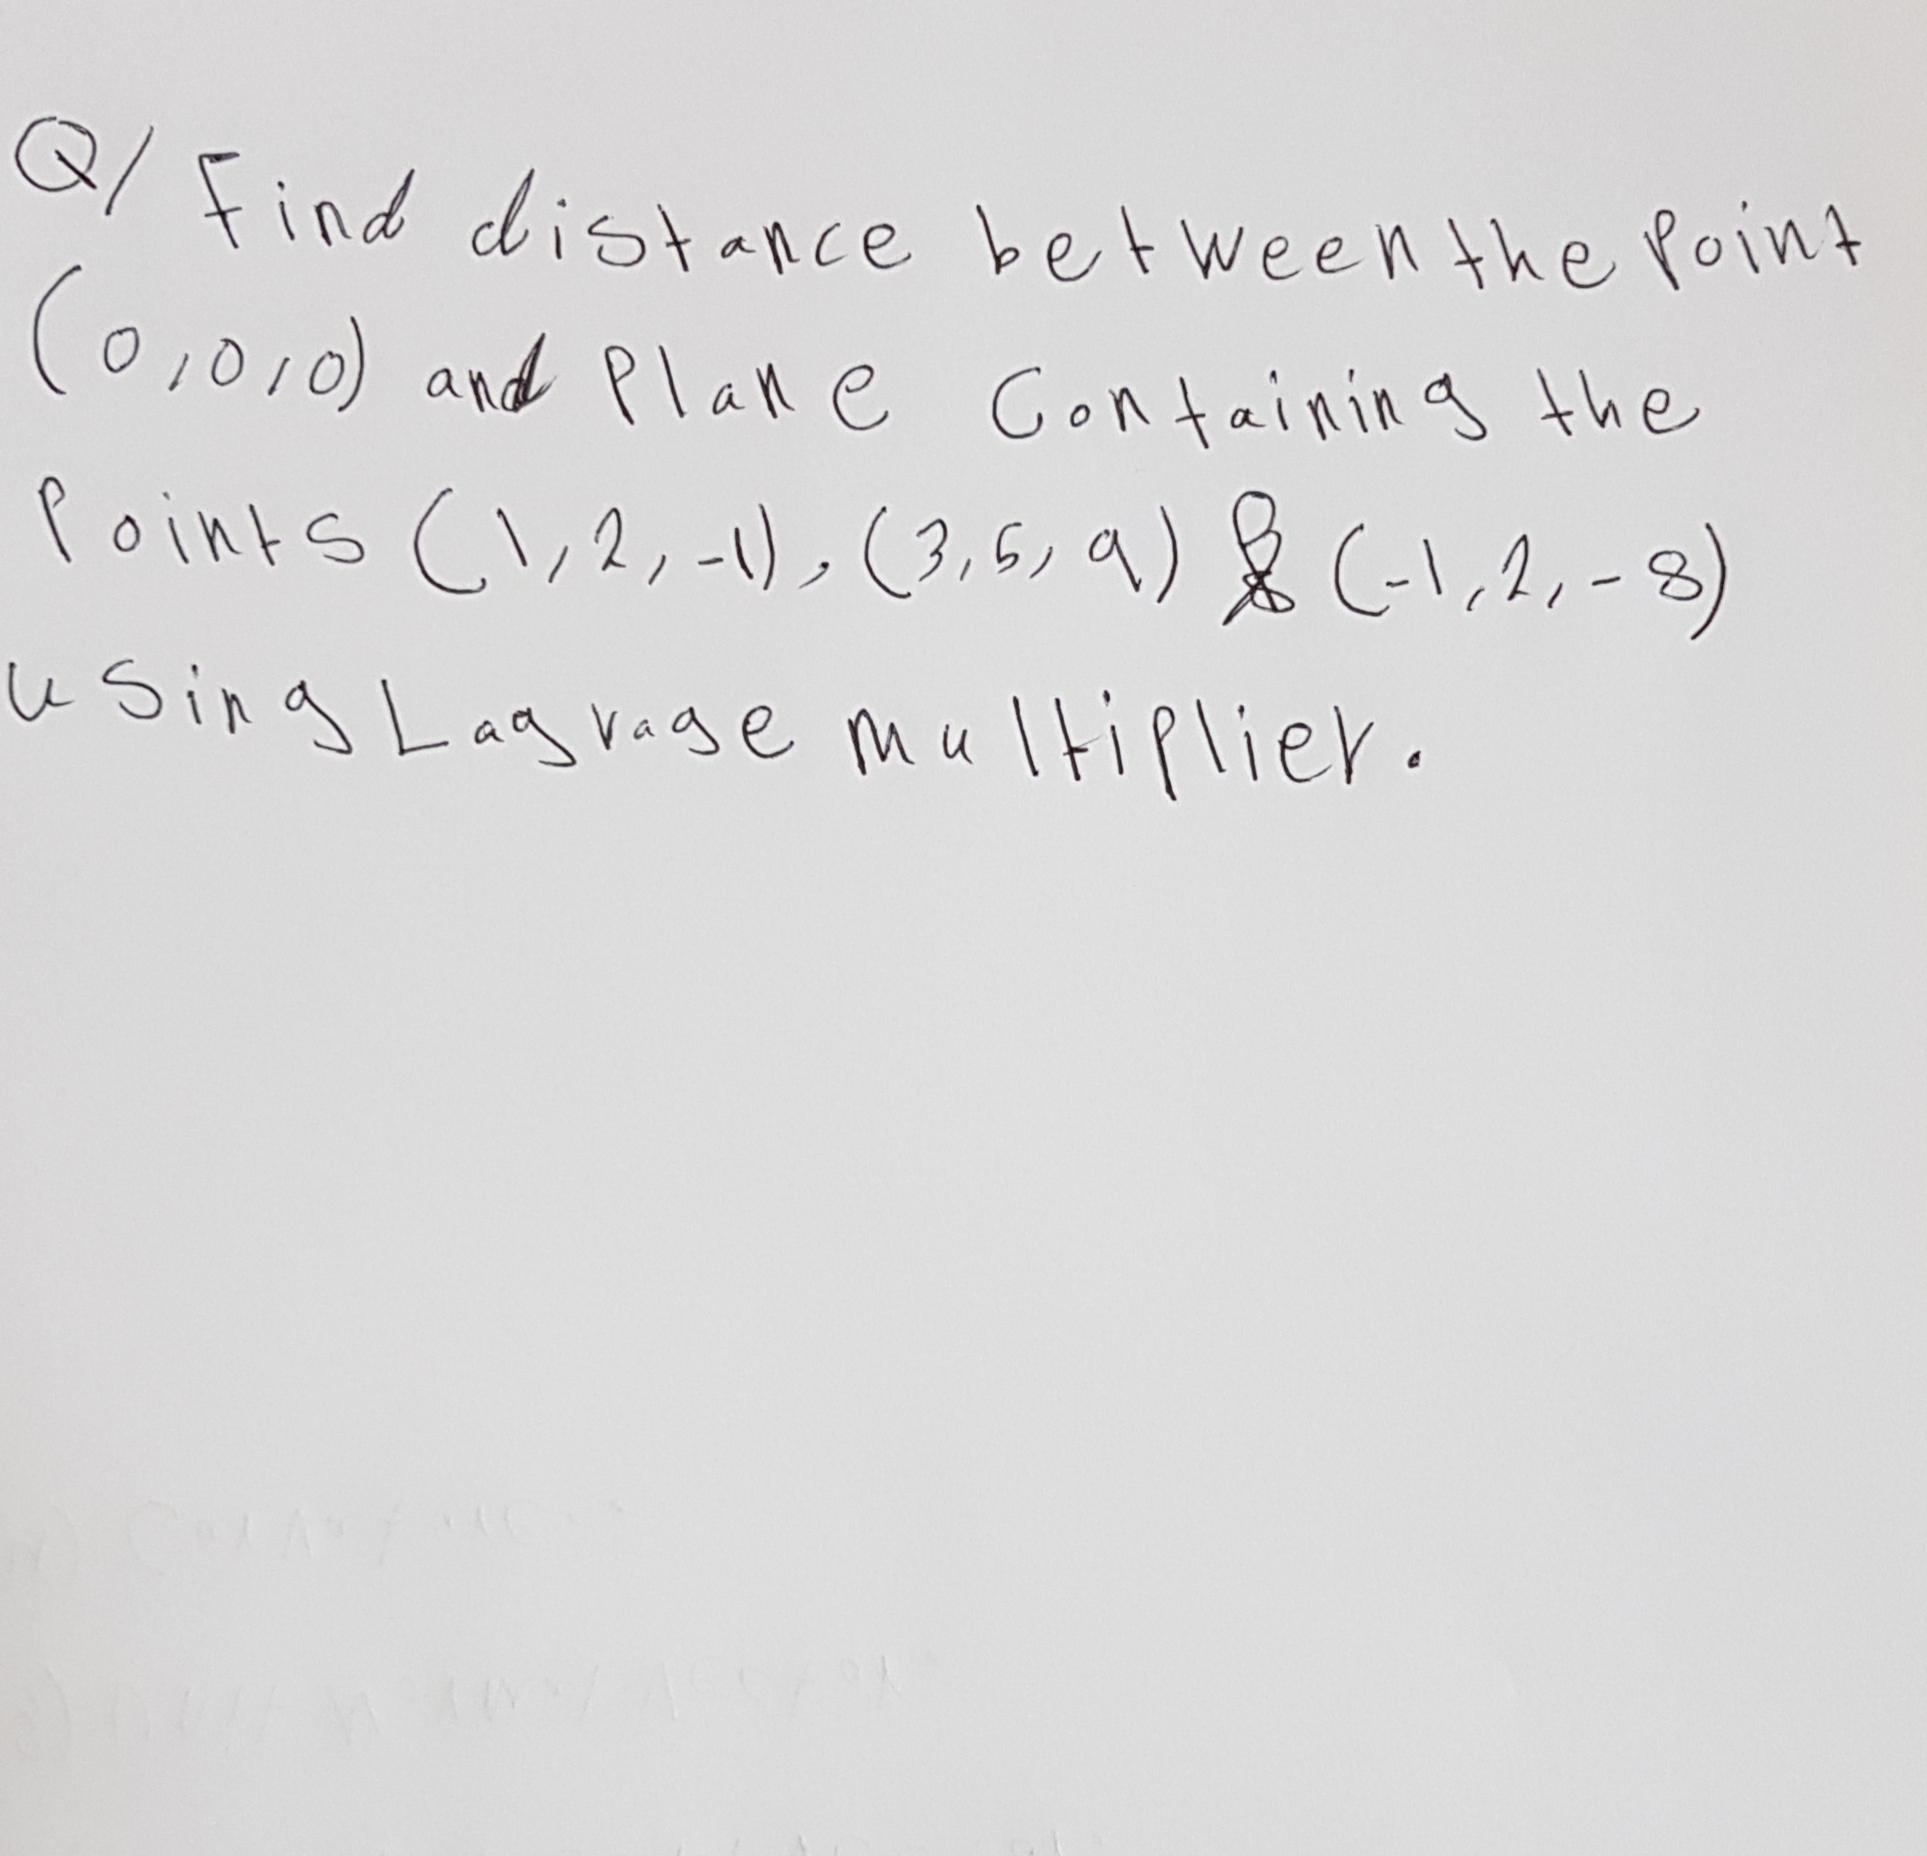 Q/ Find distance between the point
(0,0,0) and Plane Containing the
Points (1,2,-1), (3,5,9) & (-1,2,-8)
using Lagrage multiplier.